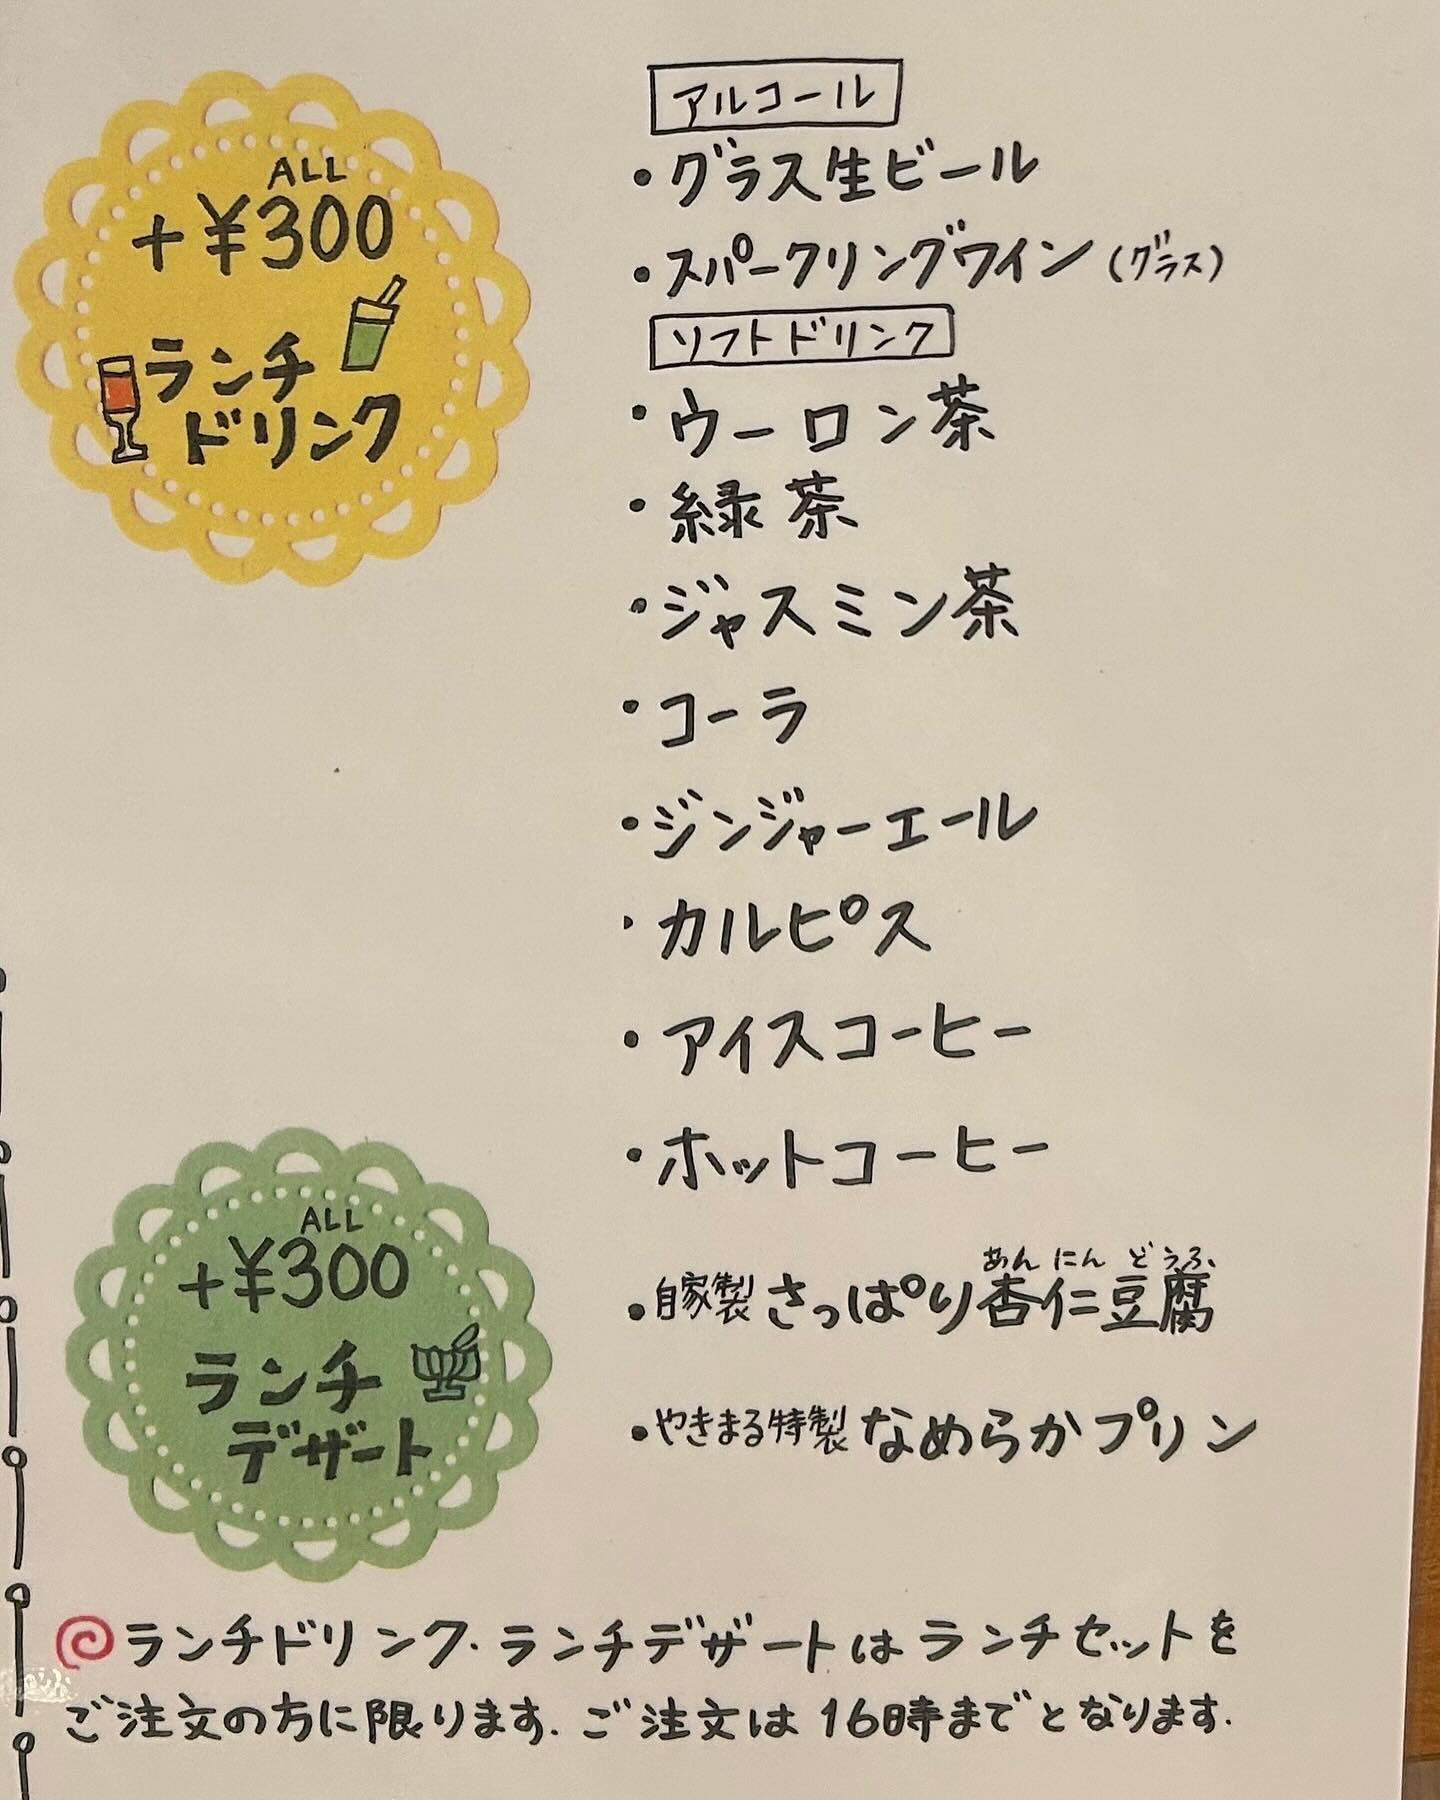 ALL
+¥300
ランチ
ドリンク
アルコール
・グラス生ビール
・スパークリングワイン(グラス)
ソフトドリンク
・ウーロン茶
・緑茶
・ジャスミン茶
・コーラ
・ジンジャーエール
・カルピス
・アイスコーヒー
・ホットコーヒー
ALL
+¥300
ランチ
デザート
あんにんどうふ
・自家製さっぱり杏仁豆腐
・やきまる特製なめらかプリン
ランチドリンク・ランチデザートはランチセットを
ご注文の方に限ります。ご注文は16時までとなります。